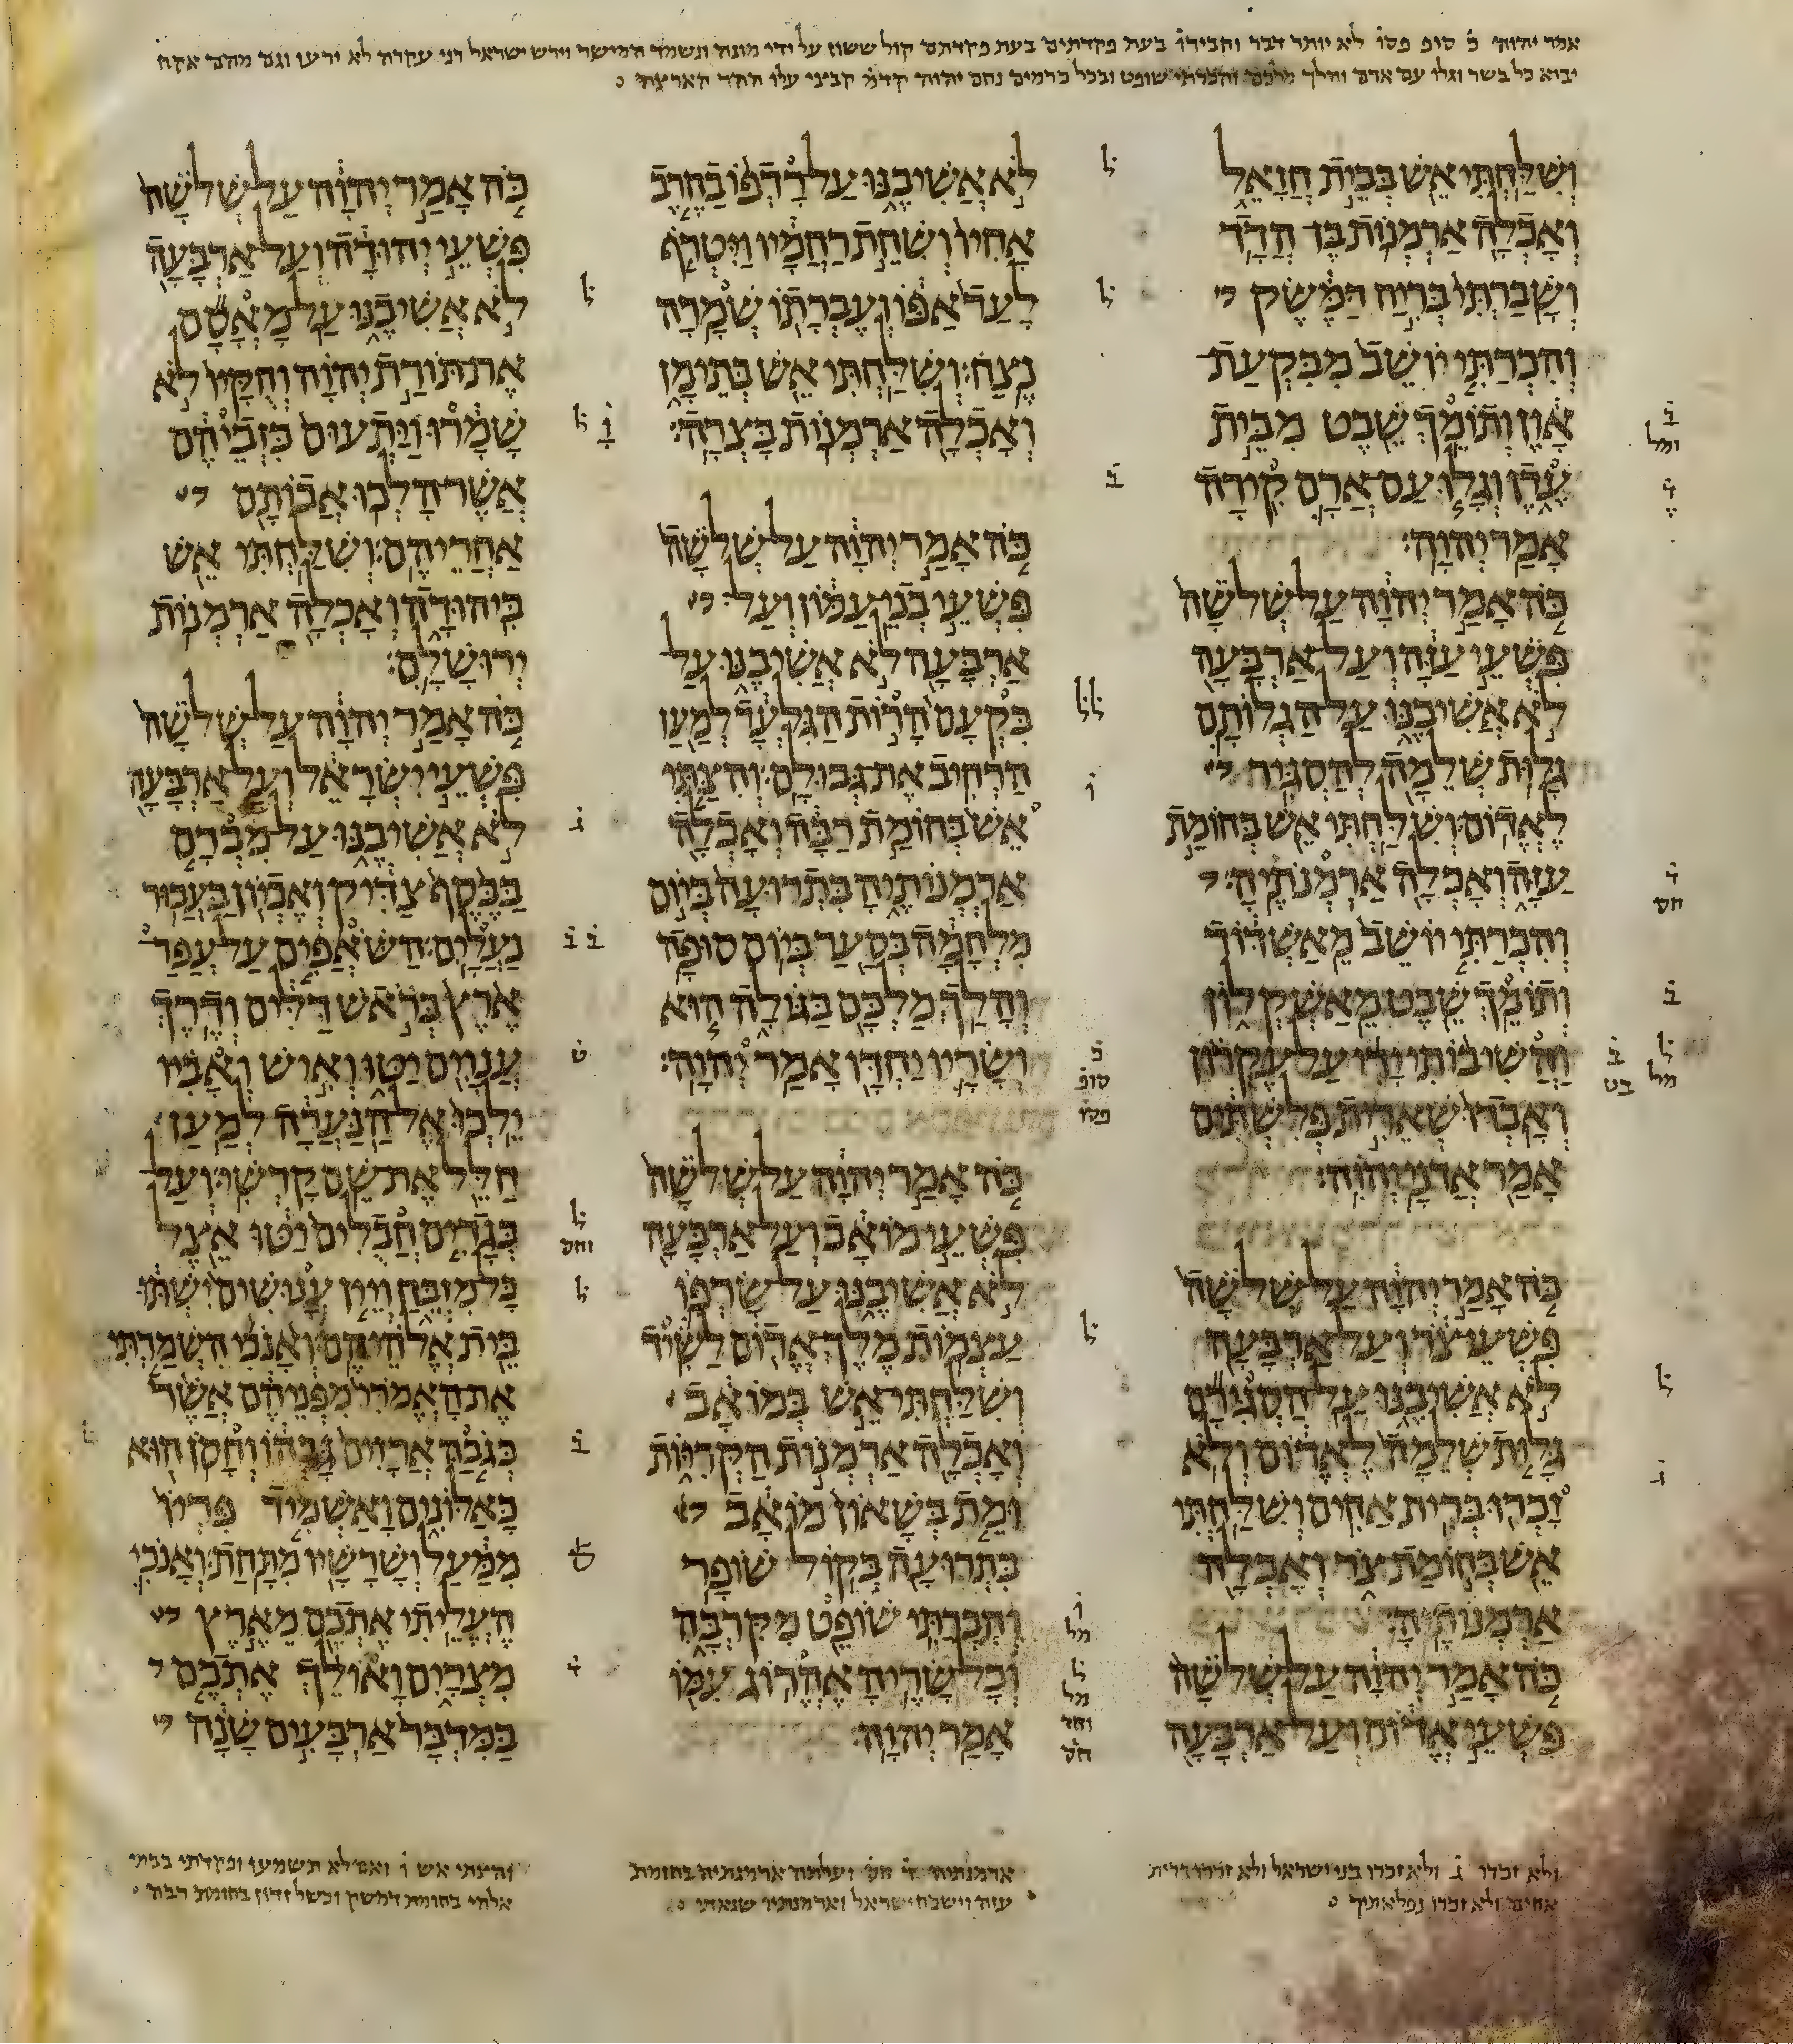 אמר יהוה כׄ סופ פסו לא יותר דבר וחבירו בעת פקדתים בעת פקדתם קול ששון על ידי מונה ונשמד המישר וירש ישראל רני עקרה לא ידעו וגם מהם אקח
יבוא כל בשר וגלו עם ארם והלך מלכם והכרתי שופט ובכל כרמים נחם יהוה
וְשִׁלַּחְתִּי אֵשׁ בְּבֵית חֲזָאֵל
וְאָכְלָה אַרְמְנוֹת בֶּן הֲדָד
וְשָׁבַרְתִּי בְּרִיחַ דַּמֶּשֶׂק
וְהִכְרַתִּי יוֹשֵׁב מִבִּקְעַת
אָוֶן וְתוֹמֵךְ שֵׁבֶט מִבֵּית
עֶדֶן וְגָלוּ עַם אֲרָם קִירָה
אָמַר יְהוָה׃
כֹּה אָמַר יְהוָה עַל שְׁלֹשָׁה
פִּשְׁעֵי עַזָּה וְעַל אַרְבָּעָה
לֹא אֲשִׁיבֶנּוּ עַל הַגְלוֹתָם
גָּלוּת שְׁלֵמָה לְהַסְגִּיר
לֶאֱדוֹם׃ וְשִׁלַּחְתִּי אֵשׁ בְּחוֹמַת
עַזָּה וְאָכְלָה אַרְמְנֹתֶיהָ׃
וְהִכְרַתִּי יוֹשֵׁב מֵאַשְׁדּוֹד
וְתוֹמֵךְ שֵׁבֶט מֵאַשְׁקְלוֹן
וַהֲשִׁיבוֹתִי יָדִי עַל עֶקְרוֹן
וְאָבְדוּ שְׁאֵרִית פְּלִשְׁתִּים
אָמַר אֲדֹנָי יְהוִה׃
כֹּה אָמַר יְהוָה עַל שְׁלֹשָׁה
פִּשְׁעֵי צֹר וְעַל אַרְבָּעָה
לֹא אֲשִׁיבֶנּוּ עַל הַסְגִּירָם
גָּלוּת שְׁלֵמָה לֶאֱדוֹם וְלֹא
זָכְרוּ בְּרִית אַחִים׃ וְשִׁלַּחְתִּי
אֵשׁ בְּחוֹמַת צֹר וְאָכְלָה
אַרְמְנוֹתֶיהָ׃
כֹּה אָמַר יְהוָה עַל שְׁלֹשָׁה
פִּשְׁעֵי אֱדוֹם וְעַל אַרְבָּעָה
לֹא אֲשִׁיבֶנּוּ עַל רָדְפוֹ בַחֶרֶב
אָחִיו וְשִׁחֵת רַחֲמָיו וַיִּטְרֹף
לָעַד אַפּוֹ וְעֶבְרָתוֹ שְׁמָרָה
נֶצַח׃ וְשִׁלַּחְתִּי אֵשׁ בְּתֵימָן
וְאָכְלָה אַרְמְנוֹת בָּצְרָה׃
כֹּה אָמַר יְהוָה עַל שְׁלֹשָׁה
פִּשְׁעֵי בְנֵי עַמּוֹן וְעַל
אַרְבָּעָה לֹא אֲשִׁיבֶנּוּ עַל
בִּקְעָם הָרוֹת הַגִּלְעָד לְמַעַן
הַרְחִיב אֶת גְּבוּלָם׃ וְהִצַּתִּי
אֵשׁ בְּחוֹמַת רַבָּה וְאָכְלָה
אַרְמְנוֹתֶיהָ בִּתְרוּעָה בְּיוֹם
מִלְחָמָה בְּסַעַר בְּיוֹם סוּפָה׃
וְהָלַךְ מַלְכָּם בַּגּוֹלָה הוּא
וְשָׂרָיו יַחְדָּו אָמַר יְהוָה׃
כֹּה אָמַר יְהוָה עַל שְׁלֹשָׁה
פִּשְׁעֵי מוֹאָב וְעַל אַרְבָּעָה
לֹא אֲשִׁיבֶנּוּ עַל שָׂרְפוֹ
עַצְמוֹת מֶלֶךְ אֱדוֹם לַשִּׂיד׃
וְשִׁלַּחְתִּי אֵשׁ בְּמוֹאָב
וְאָכְלָה אַרְמְנוֹת הַקְּרִיּוֹת
וּמֵת בְּשָׁאוֹן מוֹאָב
בִּתְרוּעָה בְּקוֹל שׁוֹפָר׃
וְהִכְרַתִּי שׁוֹפֵט מִקִּרְבָּהּ
וְכָל שָׂרֶיהָ אֶהֱרוֹג עִמּוֹ
אָמַר יְהוָה׃
כֹּה אָמַר יְהוָה עַל שְׁלֹשָׁה
פִּשְׁעֵי יְהוּדָה וְעַל אַרְבָּעָה
לֹא אֲשִׁיבֶנּוּ עַל מָאֳסָם
אֶת תּוֹרַת יְהוָה וְחֻקָּיו לֹא
שָׁמָרוּ וַיַּתְעוּם כִּזְבֵיהֶם
אֲשֶׁר הָלְכוּ אֲבוֹתָם
אַחֲרֵיהֶם׃ וְשִׁלַּחְתִּי אֵשׁ
בִּיהוּדָה וְאָכְלָה אַרְמְנוֹת
יְרוּשָׁלִָם׃
כֹּה אָמַר יְהוָה עַל שְׁלֹשָׁה
פִּשְׁעֵי יִשְׂרָאֵל וְעַל אַרְבָּעָה
לֹא אֲשִׁיבֶנּוּ עַל מִכְרָם
בַּכֶּסֶף צַדִּיק וְאֶבְיוֹן בַּעֲבוּר
נַעֲלָיִם׃ הַשֹּׁאֲפִים עַל עֲפַר
אֶרֶץ בְּרֹאשׁ דַּלִּים וְדֶרֶךְ
עֲנָוִים יַטּוּ וְאִישׁ וְאָבִיו
יֵלְכוּ אֶל הַנַּעֲרָה לְמַעַן
חַלֵּל אֶת שֵׁם קָדְשִׁי׃ וְעַל
בְּגָדִים חֲבֻלִים יַטּוּ אֵצֶל
כָּל מִזְבֵּחַ וְיֵין עֲנוּשִׁים יִשְׁתּוּ
בֵּית אֱלֹהֵיהֶם׃ וְאָנֹכִי הִשְׁמַדְתִּי
אֶת הָאֱמֹרִי מִפְּנֵיהֶם אֲשֶׁר
כְּגֹבַהּ אֲרָזִים גָּבְהוֹ וְחָסֹן הוּא
כָּאַלּוֹנִים וָאַשְׁמִיד פִּרְיוֹ
מִמַּעַל וְשָׁרָשָׁיו מִתָּחַת׃ וְאָנֹכִי
הֶעֱלֵיתִי אֶתְכֶם מֵאֶרֶץ
מִצְרָיִם וָאוֹלֵךְ אֶתְכֶם
בַּמִּדְבָּר אַרְבָּעִים שָׁנָה
ולא זכרו גׄ ולא זכרו בני ישראל ולא זכרו ברית
אחים ולא זכרו נפלאתיך
ארמנתיה דׄ חס ועלתה ארמנתיה בחומת
עזה וישכח ישראל וארמנתיו שנאתי
והיצתי אש וׄ ואם לא תשמעו ופקדתי בבתי
אלהי בחומת דמשק וכשל זדון בחומת רבה